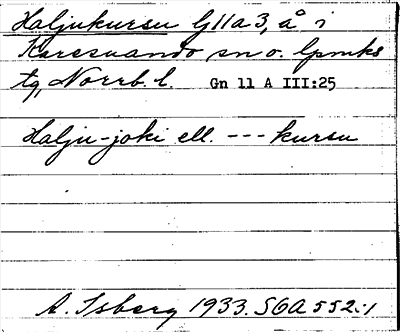 Haljukursu G11a3, å i
Karesuando sn o. lpmks
tg, Norrb. l. Gn 11 A III:25
Halju-joki ell. --- kursu
A. Isberg 1933. SGA 552:1